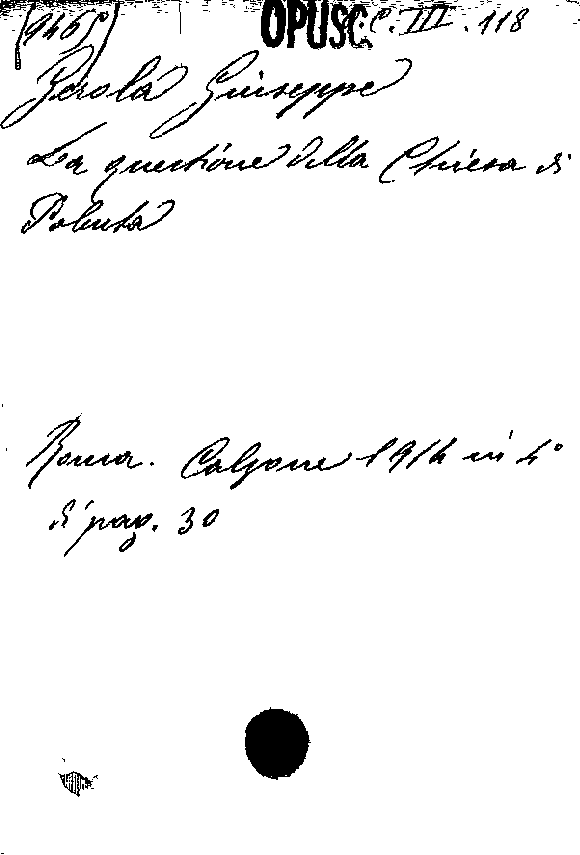 (9465)
OPUSC. C. III. 118
Gerola Giuseppe
La questione della Chiesa di
Polenta
Roma. Calzone 1914 in 4°
di pag. 30